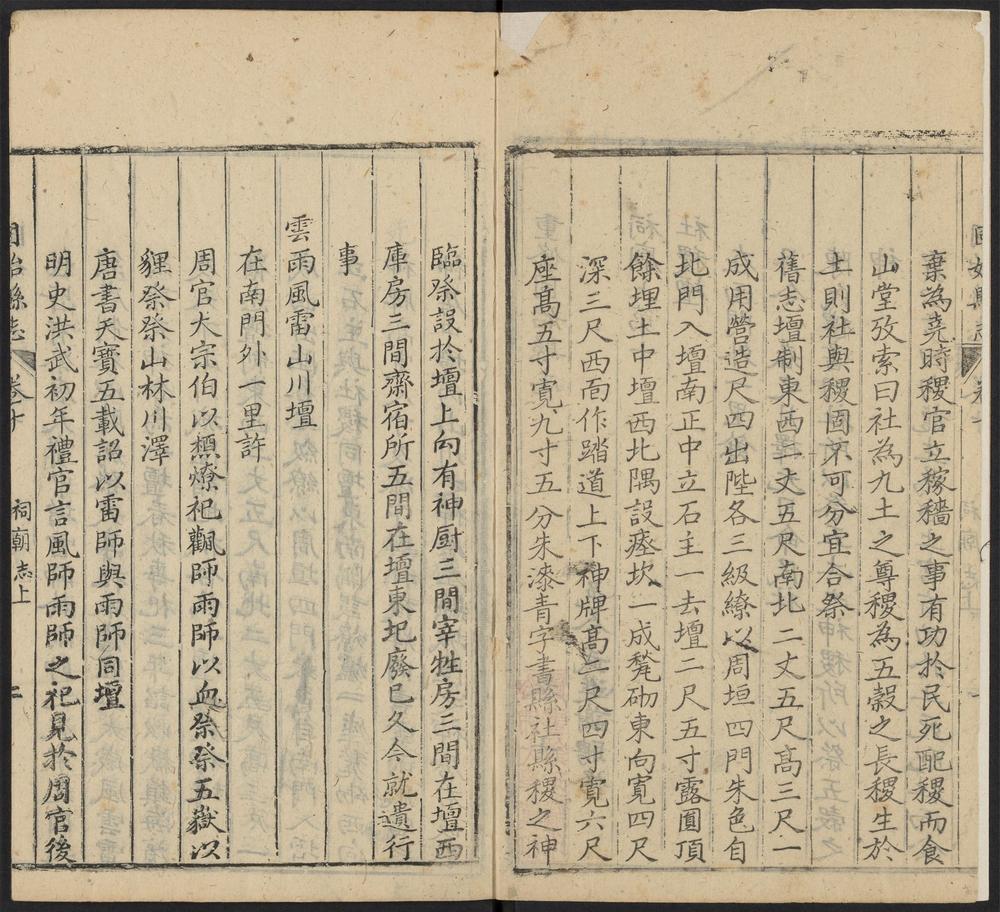 棄為堯時稷官立稼穡之事有功於民死配稷而食
山堂攷索曰社為九土之尊稷為五穀之長稷生於
土則社與稷固不可分宜合祭
舊志壇制東西二丈五尺南北二丈五尺髙三尺一
成用營造尺四出陛各三級繚以周垣四門朱色自
北門入壇南正中立石主一去壇二尺五寸露圓頂
餘埋土中壇西北隅設瘞坎一成甃砌東向寬四尺
深三尺西面作踏道上下神牌髙二尺四寸寬六尺
座髙五寸寬九寸五分朱漆青字書縣社縣稷之神
臨祭設於壇上內有神厨三間宰牲房三間在壇西
庫房三間齋宿所五間在壇東圯廢已久今就遺行
事
雲雨風雷山川壇
在南門外一里許
周官大宗伯以槱燎祀飌師雨師以血祭祭五嶽以
貍祭祭山林川澤
唐書天寶五載詔以雷師與雨師同壇
明史洪武初年禮官言風師雨師之祀見於周官後
縣志 卷十 祠廟志上 二